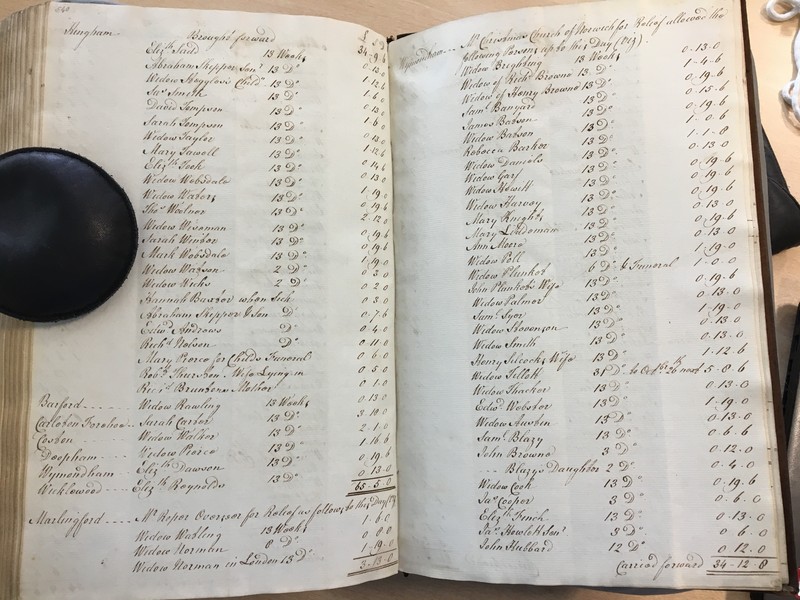 540
Hingham Brought forward £ S D
34..9..6
Eliz:th Sadd 13 Weeks 0..13..0
Abraham Skipper Senr 13 Do
Widow Hoyglass Childn 13 Do 1..12..6
Sus Smith 13 Do 1..6..0
David Tompson 13 Do
Sarah Tompson 13 Do 1..6..0
Widow Taylor 13 Do 0..13..0
Mary Sawell 13 Do 1..12..6
Eliz:th Took 13 Do
Widow Wobsdale 13 Do 0..13..0
Widow Waters 13 Do 1..19..0
Thos Woolnor 13 Do 0..19..6
Widow Wiseman 13 Do 2..12..0
Sarah Winter 13 Do 0..19..6
Mark Woodsdale 13 Do 0..19..6
Widow Watson 2 Do 0..3..0
Widow Wicks 2 Do 0..2..0
Hannah Baxter when Sick 0..3..0
Abraham Skipper & Son Do 0..7..6
Edwd Andrews Do 0..4..0
Richd Hobson Do 0..11..0
Mary Pierce for Childs Funeral 0..6..0
Robt Thurston Wife Lying in 0..5..0
Mother 0..1..0
Barford Widow Rawling 13 Weeks 0..13..0
Carleton Forehoe Sarah Carter 13 Do 3..10..0
Coston Widow Walker 13 Do 2..1..0
Deopham Widow Pierce 13 Do 1..16..6
Wymondham Eliz:th Dawson 13 Do 0..19..6
Wicklewood Eliz:th Reynolds 13 Do 0..13..0
65..5..0
Marlingford Mr Roper Overseer for Relief as follows to this Day (Viz)
Widow Watling 13 Weeks 1..6..0
Widow Norman 8 Do 0..8..0
Widow Norman in London 13 Do 1..19..0
3..13..0
Wymondham Mr Christmas Church of Norwich for Relief allowed the
following Persons up to this Day (Viz).
Widow Brighting 13 Weeks 0..13..0
Widow of Richd Browne 13 Do 1..4..6
Widow of Henry Browne 13 Do 0..19..6
Saml Bangard 13 Do 0..15..6
James Batson 13 Do 0..19..6
Widow Batson 13 Do 1..0..6
Rebecca Barker 13 Do 1..1..8
Widow Daniels 13 Do 0..13..0
Widow Gary 13 Do 0..19..6
Widow Howell 13 Do
Widow Harvey 13 Do 0..13..0
Mary Knights 13 Do 0..19..6
Mary Loudemain 13 Do 0..13..0
Ann Moore 13 Do
Widow Poll 13 Do 1..19..0
Widow Plunket 6 Do & Funeral 1..0..0
John Plunkets Wife 13 Do 0..19..6
Widow Palmer 13 Do 0..13..0
Saml Syer 13 Do 1..19..0
Widow Stevenson 13 Do 0..13..0
Widow Smith 13 Do
Henry Silcocks Wife 13 Do 1..12..6
Widow Tillott 31 Do to Octr 26th next 5..8..6
Widow Thacker 13 Do 0..13..0
Edwd Webster 13 Do 1..19..0
Widow Austen 13 Do 0..13..0
Saml Blazy 13 Do 0..6..6
John Browne 3 Do 0..12..0
Blazys Daughter 2 Do 0..4..0
Widow Cook 13 Do 0..19..6
Jas Cooper 3 Do 0..6..0
Eliz:th Finch 13 Do 0..13..0
Jas Howlett Senr 3 Do 0..6..0
John Hubbard 12 Do 0..12..0
Carried forward 34..12..8